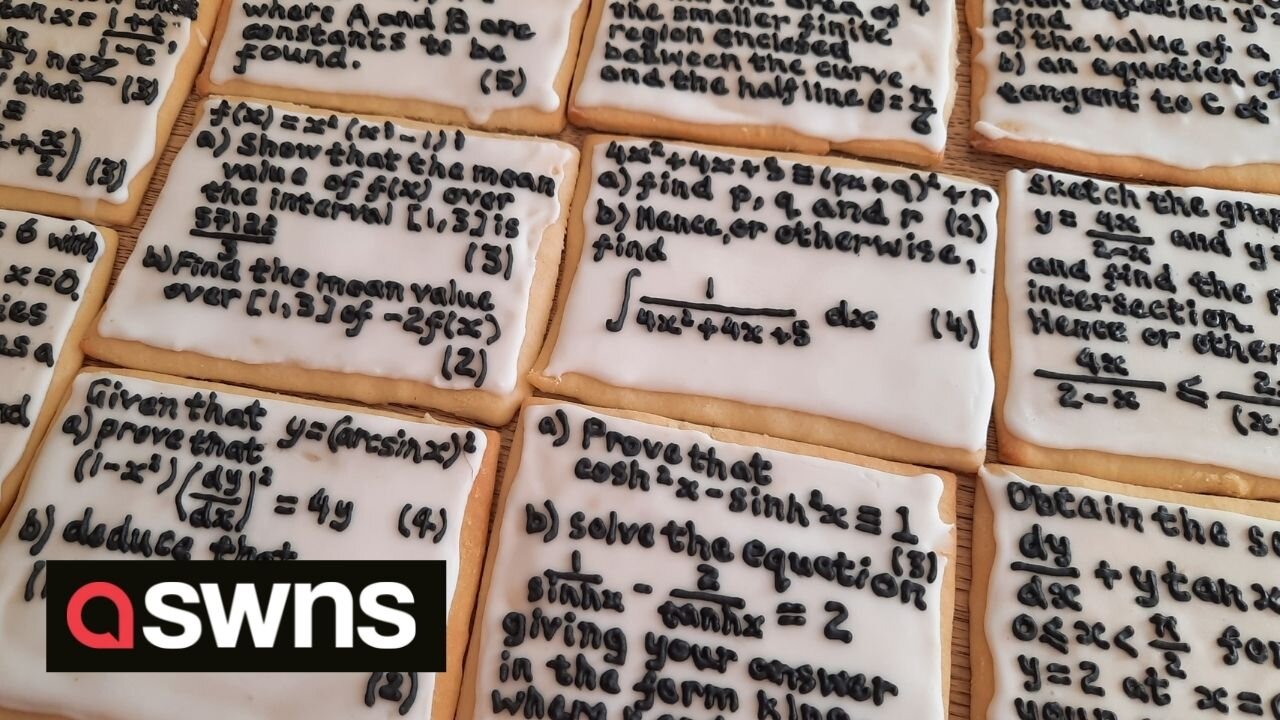 tan x = 1+t
1-t
that
(3)
(3)
where A and B are
constants to be
found.
(5)
the smaller finite
region enclosed
between the curve
and the half line θ = π
6
find
a) the value of a
b) an equation of
tangent to c at
a) Show that the mean
value of f(x) over
the interval [1,3] is
57122
3
(3)
b) Find the mean value
over [1,3] of -2f(x)
(2)
4x²+4x+5 ≡ (px+q)²+r
a) find p, q and r (2)
b) Hence, or otherwise,
find
∫ 1
4x²+4x+5 dx (4)
sketch the
y = 4x
2-x and y
and find the
intersection.
Hence or
4x
2-x ≤ 2
= 6 with
x=0
Given that
y=(arcsinx)²
a) prove that
(1-x²)(dy/dx)² = 4y (4)
b) deduce that
(2)
a) Prove that
cosh²x-sinh²x≡1
(3)
b) solve the equation
1/sinhx - 2/tanhx = 2
giving your answer
in the form
Obtain the
dy
dx + y tan x
0≤x<π/2 for
y=2 at x=
aswns